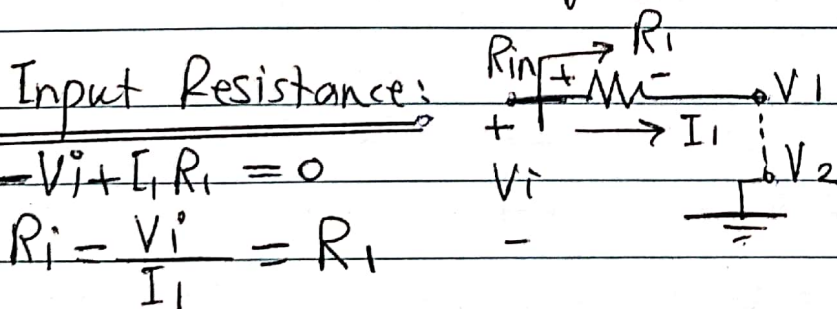 Input Resistance:
-Vi + I1 R1 = 0
Ri = Vi / I1 = R1
Rin R1
+ - V1
+ I1
Vi V2
-